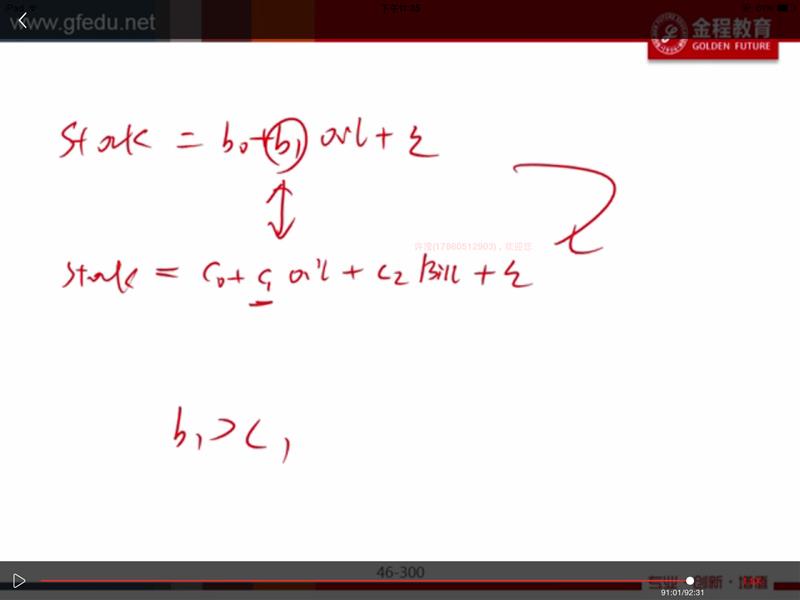 下午11:33
www.gfedu.net
金程教育
GOLDEN FUTURE
Stock = b₀+b₁ oil + ε
Stock = C₀+ C₁ oil + C₂ Bill + ε
b₁ > C₁
46-300
专业·创新·增值
91:01/92:31